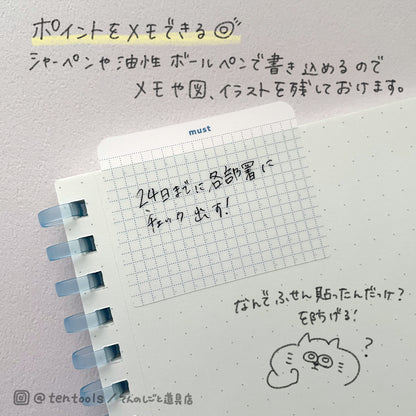 ポイントをメモできる◎
シャーペンや油性ボールペンで書き込めるので
メモや図、イラストを残しておけます。
must
24日までに各部署に
チェック出す！
なんでふせん貼ったんだっけ？
を防げる！
?
@tentools/てんのしごと道具店